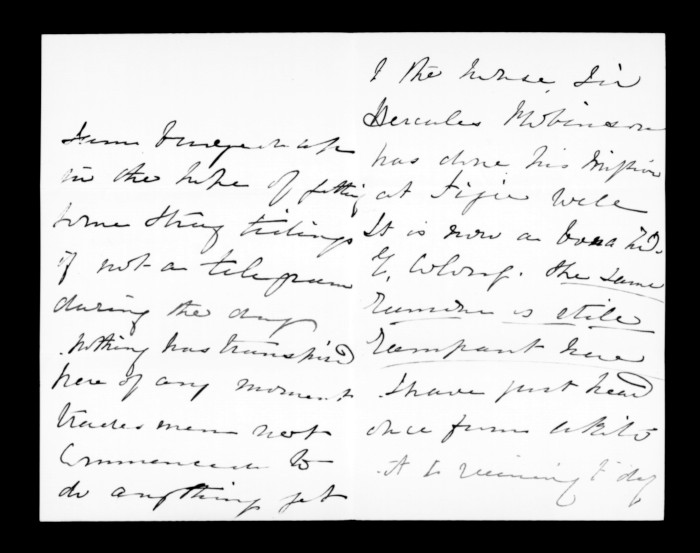 in the hope of getting
some stray tidings
if not a telegram
during the day
nothing has transpired
here of any moment
trades men not
commenced to
do anything yet
I the house, Sir
Hercules Robinson
has done his mission
at Figie well
It is now a bona fid.
Colony. the same
rumour is still
rampant here
I have just heard
once from
it is raining to day